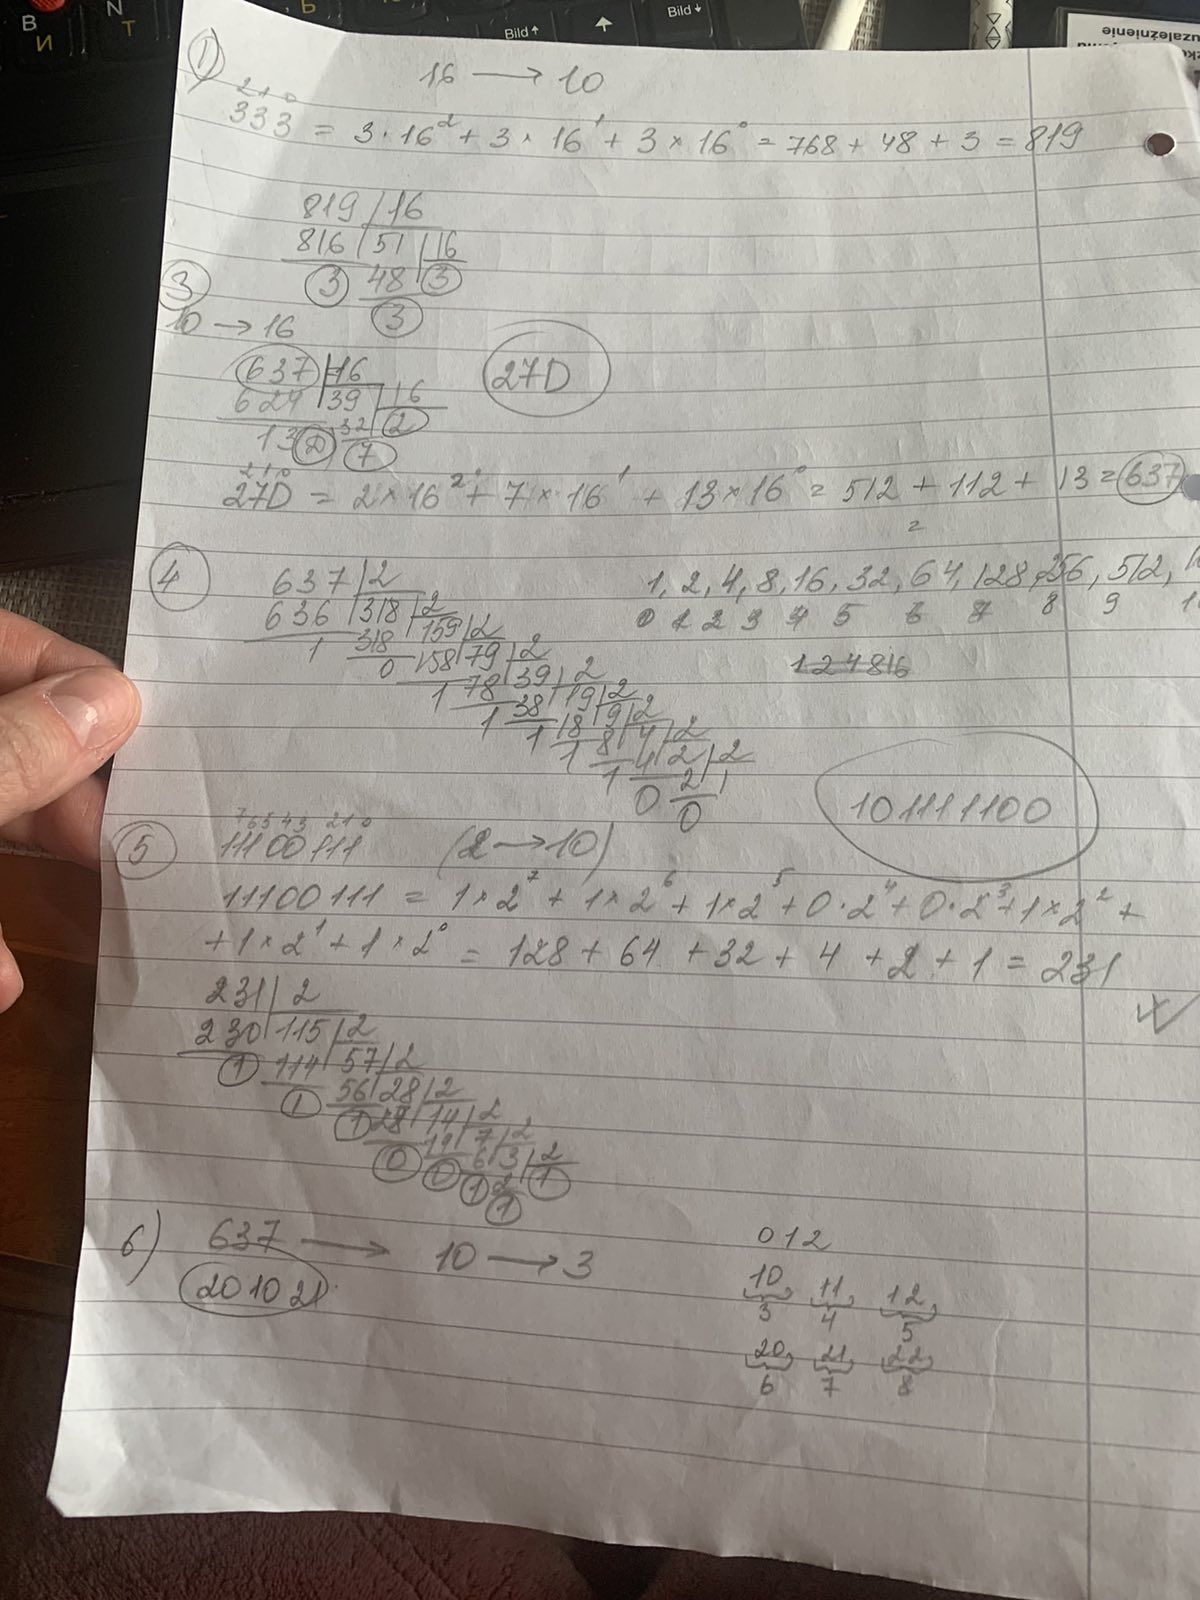 В
И
N
Т
Ь
Bild↑
↑
Bild↓
uzależnienie
1) 16 → 10
2 1 0
333 = 3 · 16² + 3 × 16¹ + 3 × 16⁰ = 768 + 48 + 3 = 819
819 | 16
816 | 51 | 16
3 48 3
3
3
10 → 16
637 | 16
624 | 39 | 16
13 D 32 2
7
27D
2 1 0
27D = 2 × 16² + 7 × 16¹ + 13 × 16⁰ = 512 + 112 + 13 = 637
=
4
637 | 2
636 | 318 | 2
1 318 | 159 | 2
0 158 | 79 | 2
1 78 | 39 | 2
1 38 | 19 | 2
1 18 | 9 | 2
1 8 | 4 | 2
1 4 | 2 | 2
0 2 1
0
1, 2, 4, 8, 16, 32, 64, 128, 256, 512,
0 1 2 3 4 5 6 7 8 9
124816
101111100
5
7 6 5 4 3 2 1 0
11100111 (2 → 10)
11100111 = 1 × 2⁷ + 1 × 2⁶ + 1 × 2⁵ + 0 · 2⁴ + 0 · 2³ + 1 × 2² +
+ 1 × 2¹ + 1 × 2⁰ = 128 + 64 + 32 + 4 + 2 + 1 = 231
231 | 2
230 | 115 | 2
1 114 | 57 | 2
1 56 | 28 | 2
1 28 | 14 | 2
0 14 | 7 | 2
0 6 | 3 | 2
1 2 1
1
6) 637 → 10 → 3
201021
0 1 2
10 11 12
3 4 5
20 21 22
6 7 8